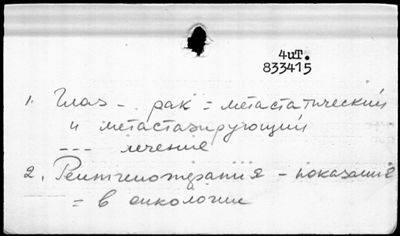 4чт.
833415
1. Глаз - рак = метастатический
и метастазирующий
--- лечение
2. Рентгенотерапия - показания
= в онкологии